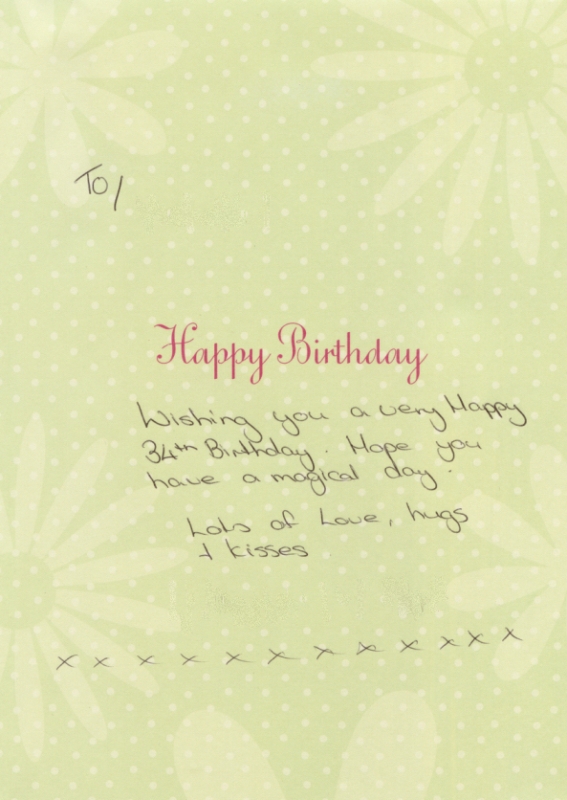 To/
Happy Birthday
Wishing you a very Happy
34th Birthday. Hope you
have a magical day.
Lots of Love, hugs
+ kisses
x x x x x x x x x x x x